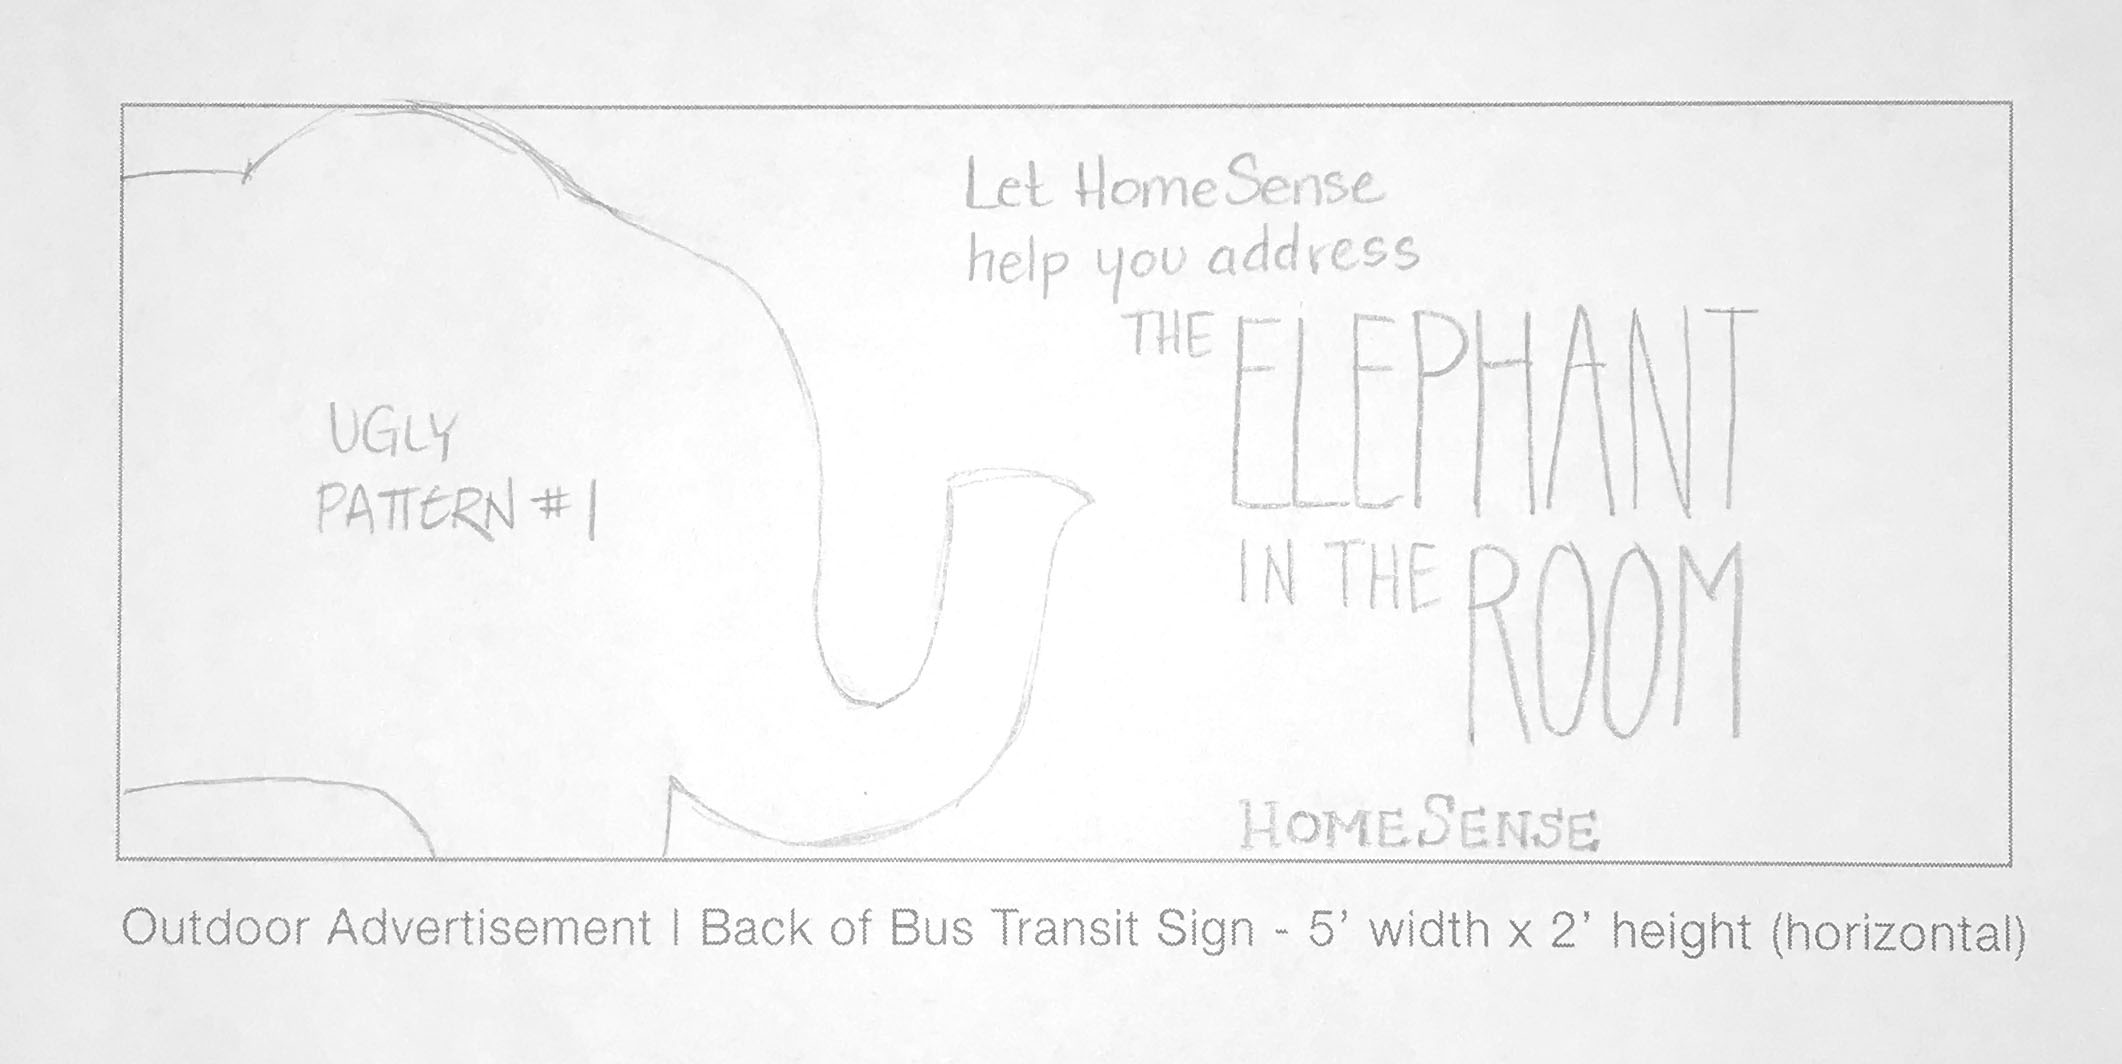 Let HomeSense
help you address
THE ELEPHANT
IN THE ROOM
UGLY
PATTERN #1
HOMESENSE
Outdoor Advertisement | Back of Bus Transit Sign - 5' width x 2' height (horizontal)